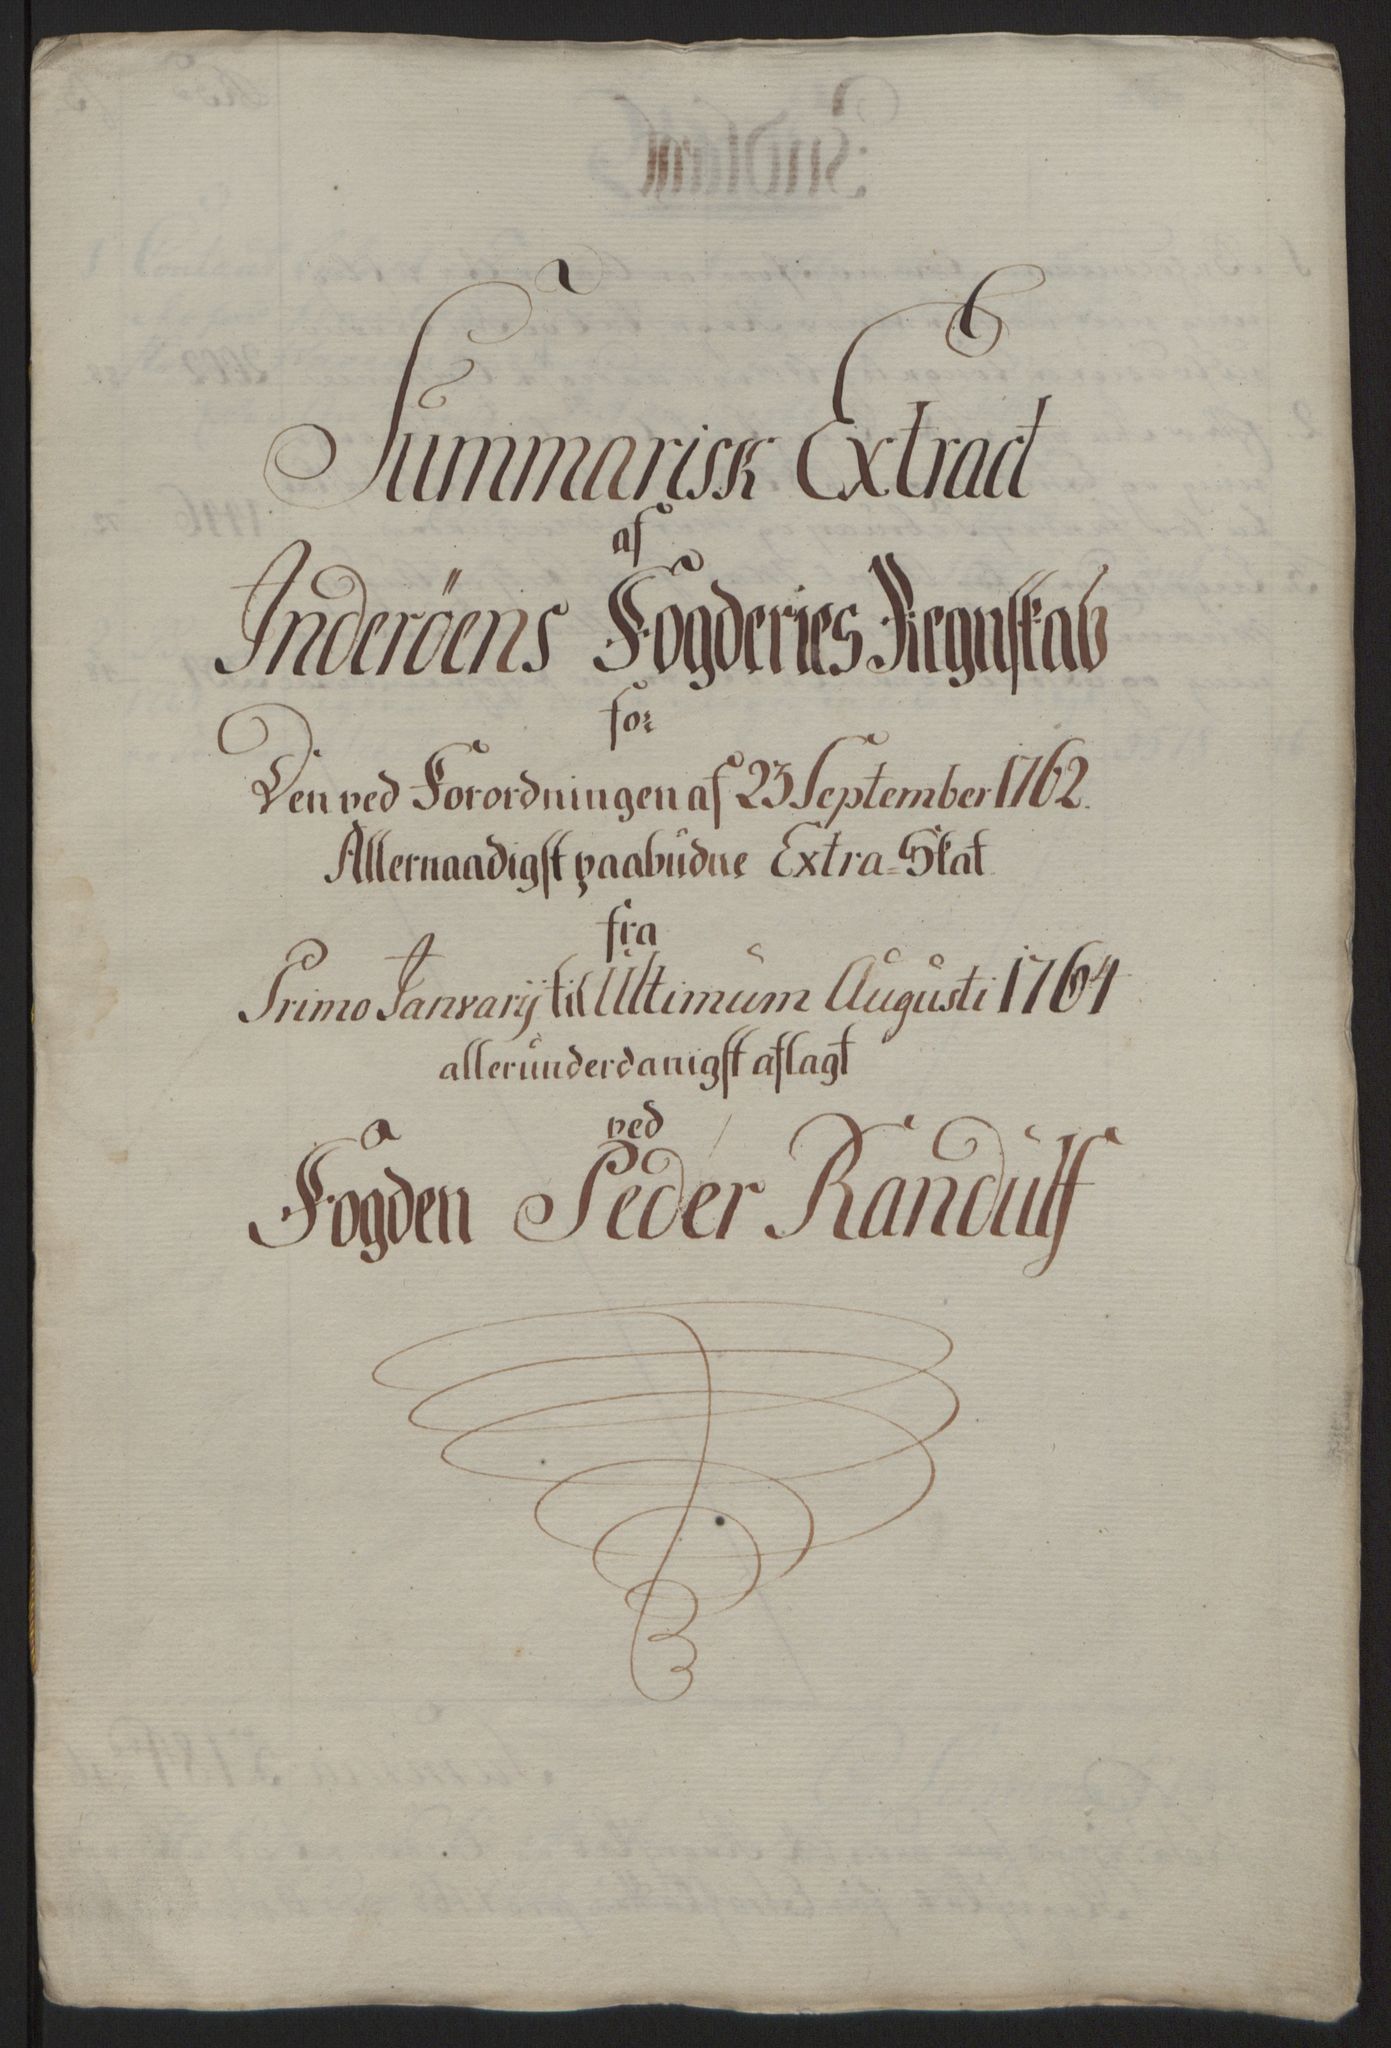 Summarisk Extract
af
Inderöens Fogderies Regnskab
for
Den ved Forordningen af 23 September 1762.
Allernaadigst paabudne Extra-Skat
fra
Primo Janvarij til Ultimum Augusti 1764
allerunderdanigst aflagt
ved
Fogden Peder Randulf